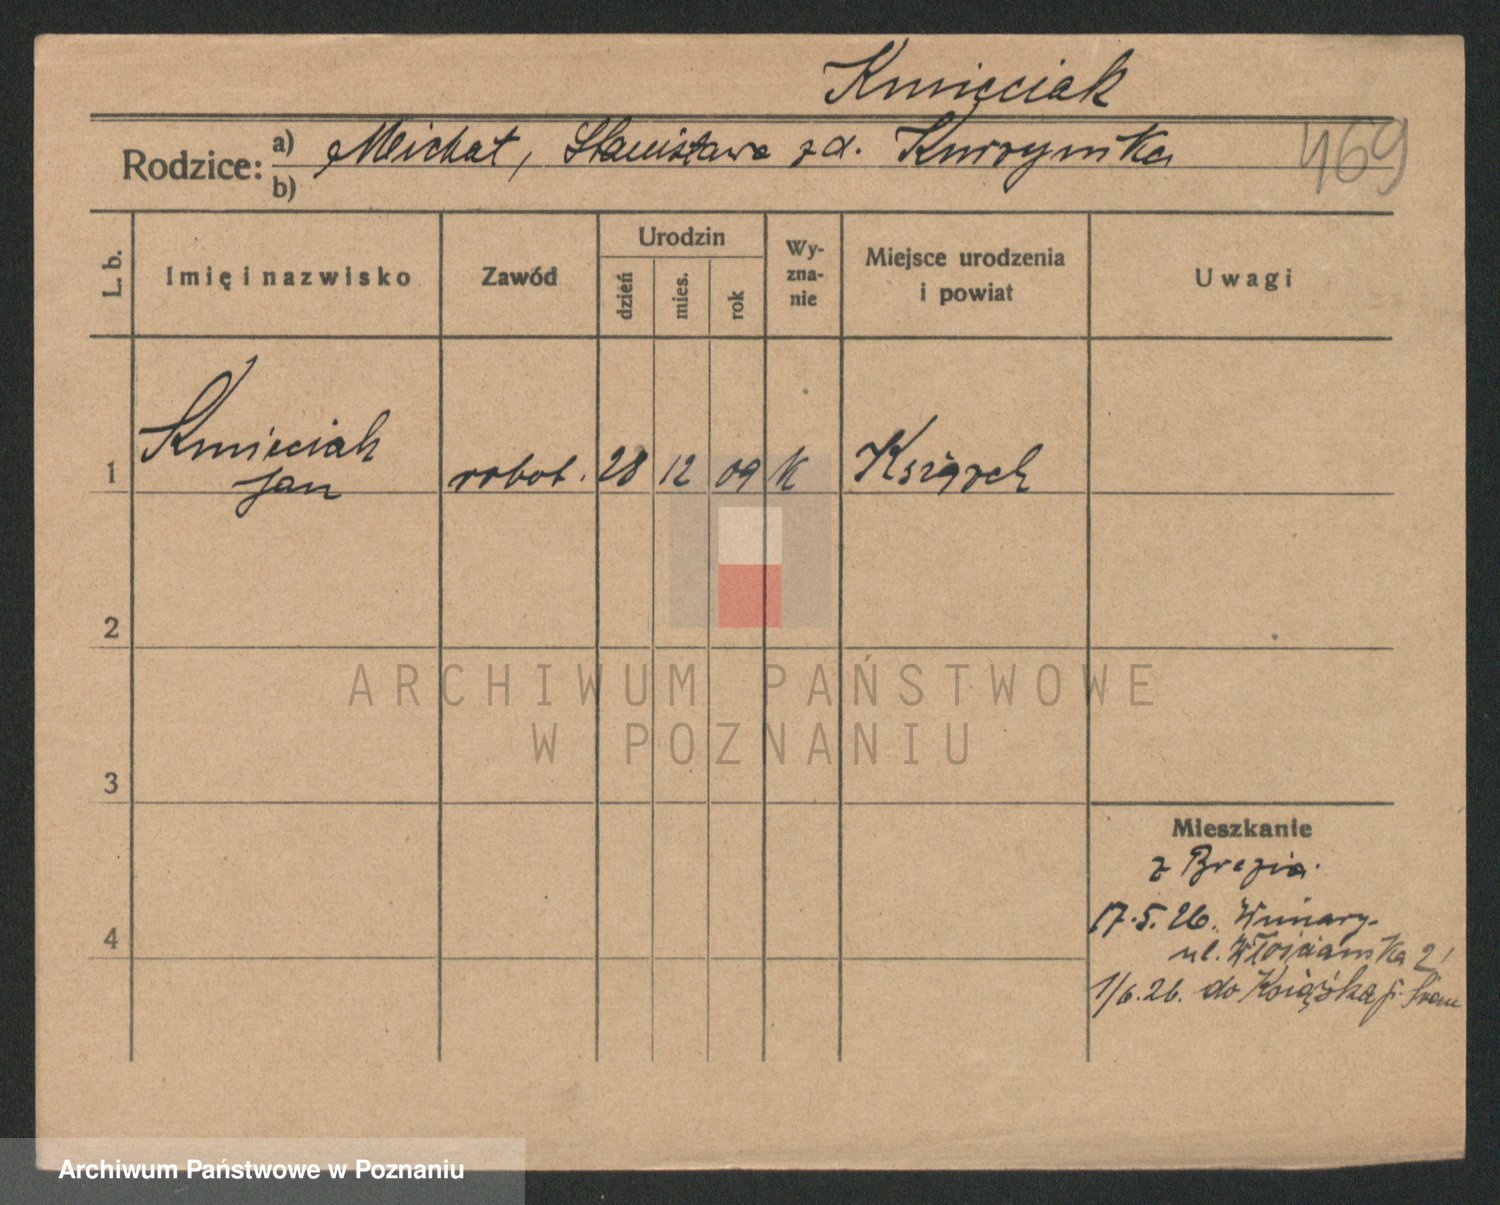 Kmieciak
Rodzice: a) Michał, Stanisława z d. Kurzymka
b)
469
L. b.
Imię i nazwisko
Zawód
Urodzin
dzień
mies.
rok
Wy-
zna-
nie
Miejsce urodzenia
i powiat
Uwagi
1 Kmieciak robot. 28 12 09 K Książek
Jan
2
3
4
Mieszkanie
z Brezia.
17.5.26. Winiary-
ul. Włościańska 2
1/6.26. do Książka p. Śrem
ARCHIWUM PAŃSTWOWE
W POZNANIU
Archiwum Państwowe w Poznaniu